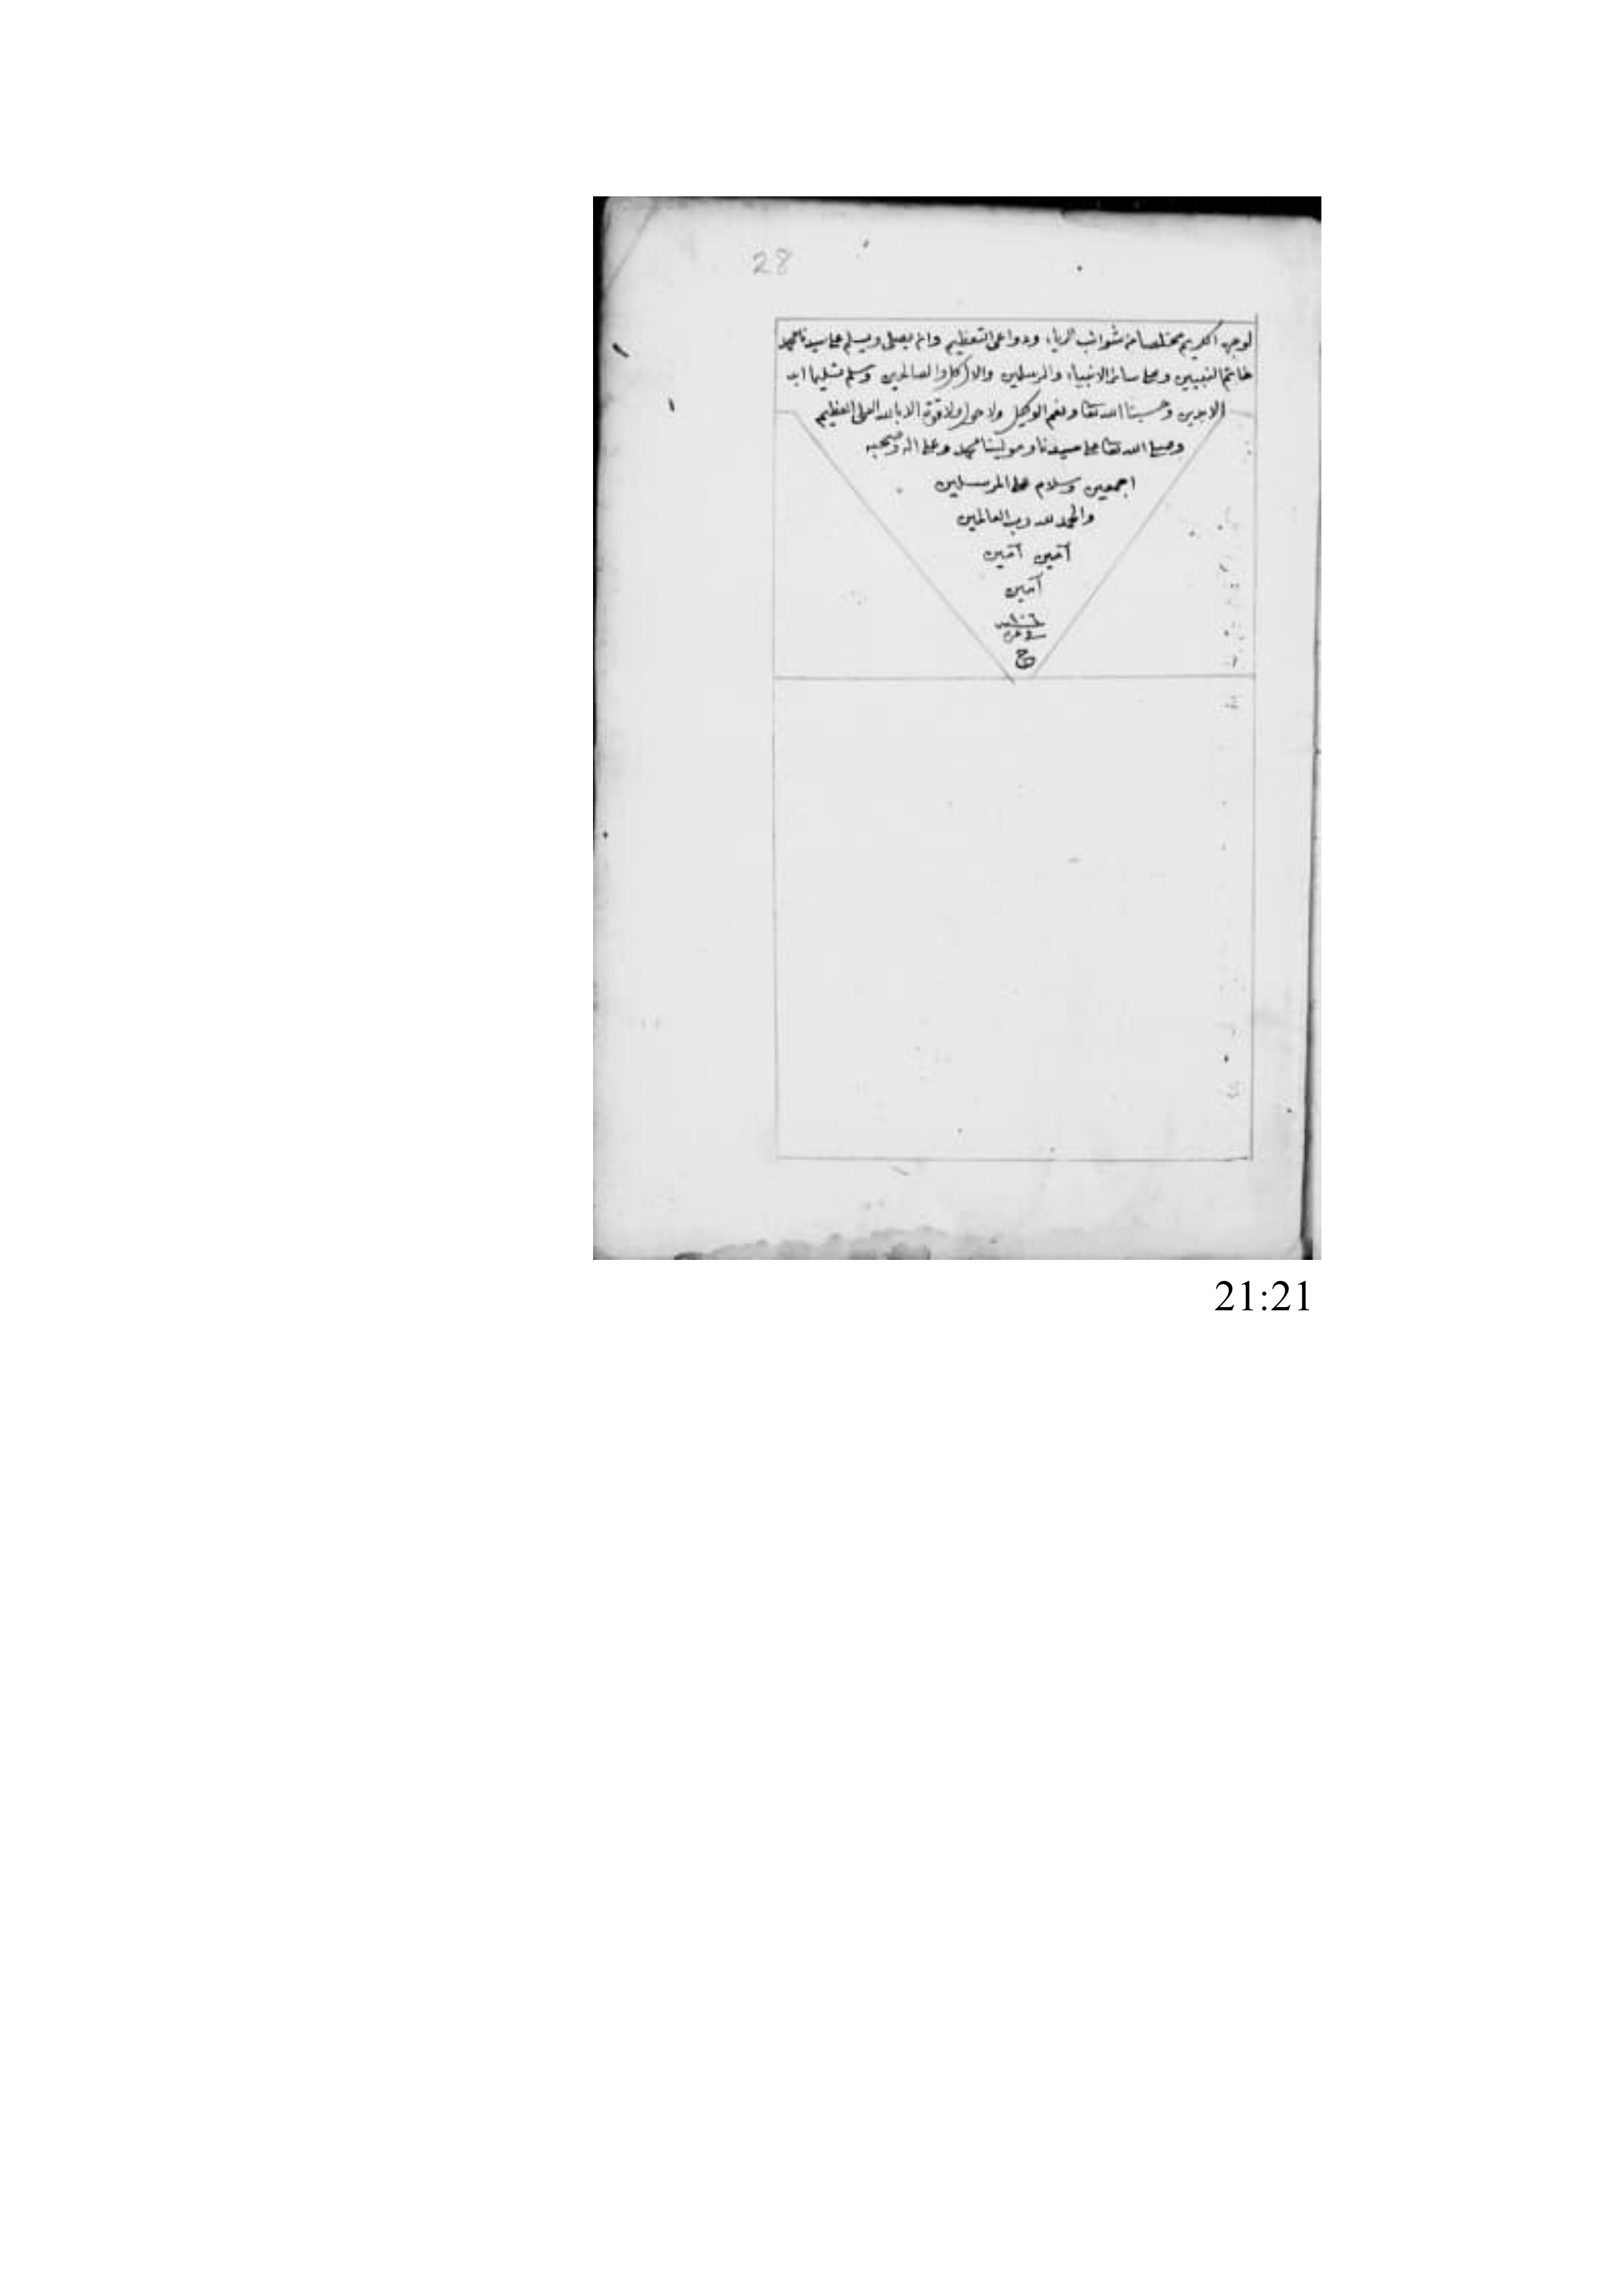 28
لوجهه الكريم مخلصا من شوائب الرياء ودواعى التعظيم وان يصلى ويسلم على سيدنا محمد
خاتم النبيين وعلى سائر الانبياء والمرسلين وال كل والصالحين وسلم تسليما ابد
الابدين وحسبنا الله تعا ونعم الوكيل ولا حول ولا قوة الا بالله العلى العظيم
وصلى الله تعا على سيدنا ومولينا محمد وعلى اله وصحبه
اجمعين وسلام على المرسلين
والحمد لله رب العالمين
آمين آمين
آمين
21:21